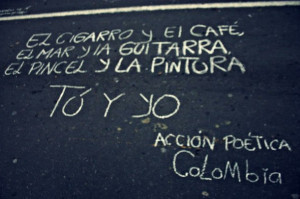 EL CIGARRO y El CAFÉ,
EL MAR y lA GUITARRA,
EL PINCEL y LA PINTURA
TÚ Y YO
ACCIÓN POÉTICA
COLOMbiA